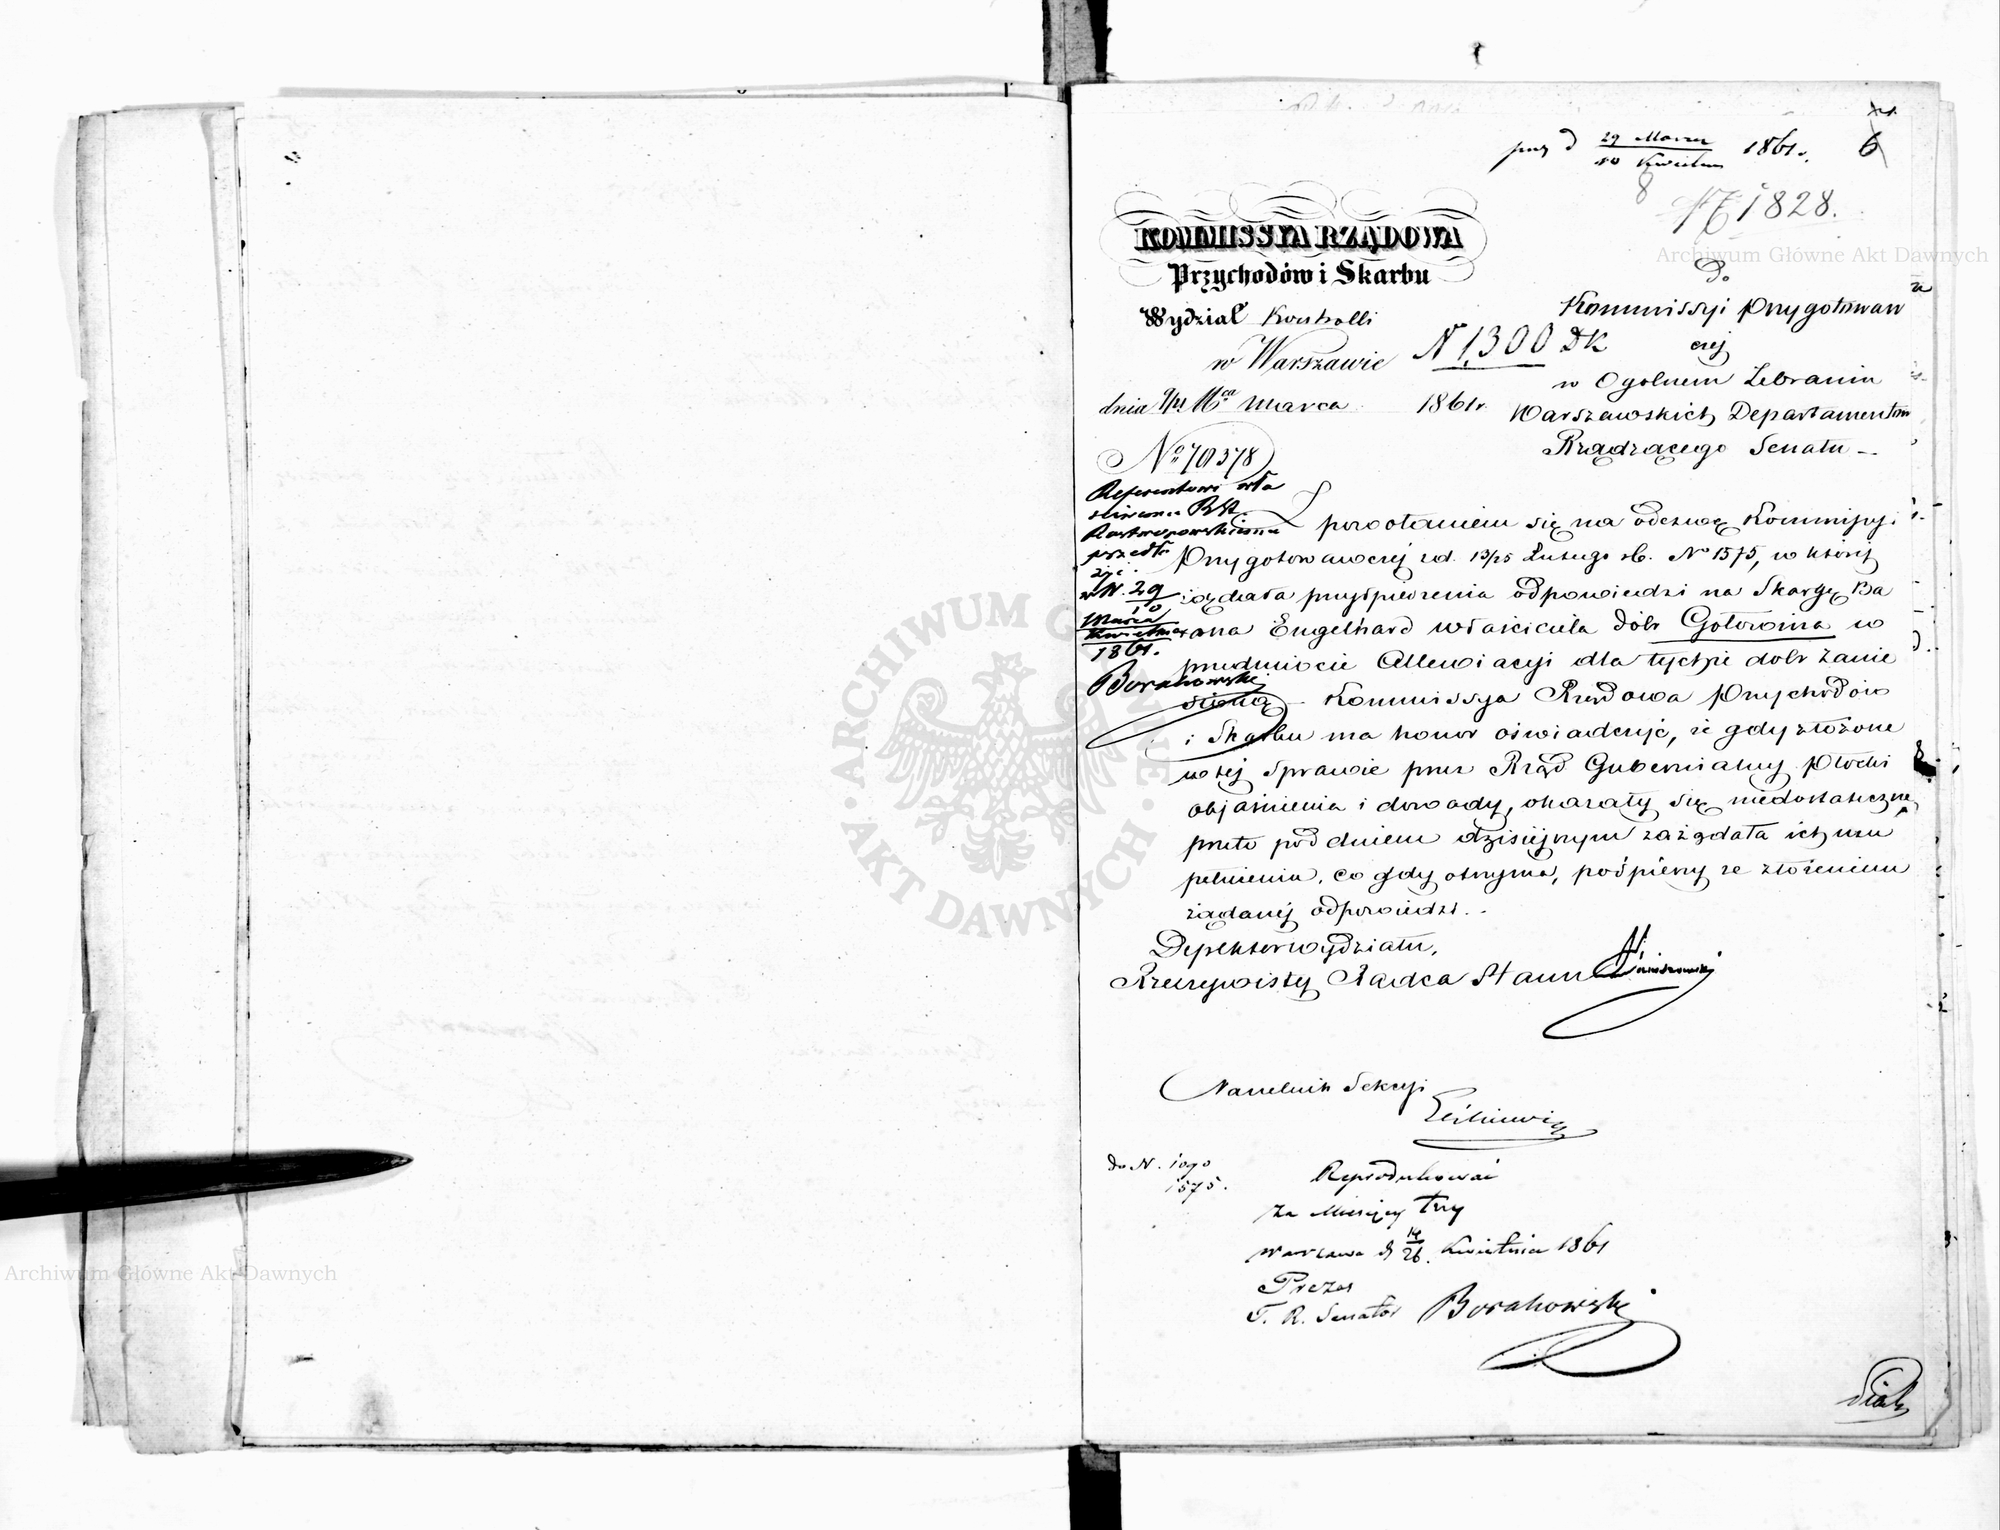 29 Marca
10 Kwietnia 1861 r. 6
8
N 1828.
KOMMISSYA RZĄDOWA
Przychodów i Skarbu
Wydział Kontrolli
w Warszawie N 1,300 DK
dnia 9/21 Mca Marca 1861 r.
No 70378
Do
Kommissyi Przygotowaw
czej
w Ogólnem Zebraniu
Warszawskich Departamentów
Rządzącego Senatu
Referentowi wła
ściwemu
przedło
żyć.
w W. 29
10
Marca
Kwietnia
1861.
Borakowski
Z powołaniem się na odezwę Kommissyi
Przygotowawczej z d. 13/25 Lutego rb. No 1575, w której
żądała przyśpieszenia odpowiedzi na Skargę Ba
rona Engelhard właściciela dóbr Gołozowa w
przedmiocie Allewiacyi dla tychże dóbr zanie
sioną – Kommissya Rządowa Przychodów
i Skarbu ma honor oświadczyć, że gdy złożone
w tej Sprawie przez Rząd Gubernialny Płocki
objaśnienia i dowody, okazały się niedostateczne,
przeto pod dniem dzisiejszym zażądała ich uzu
pełnienia, co gdy otrzyma, pośpieszy ze złożeniem
żądanej odpowiedzi.
Dyrektor Wydziału,
Rzeczywisty Radca Stanu
Naczelnik Sekcyi
do N. 1090
1575.
Reprodukować
za Miesięcy trzy
Warszawa d 14/26. Kwietnia 1861
Prezes
T. R. Senator Borakowski
Archiwum Główne Akt Dawnych
ARCHIWUM GŁÓWNE AKT DAWNYCH
Archiwum Główne Akt Dawnych